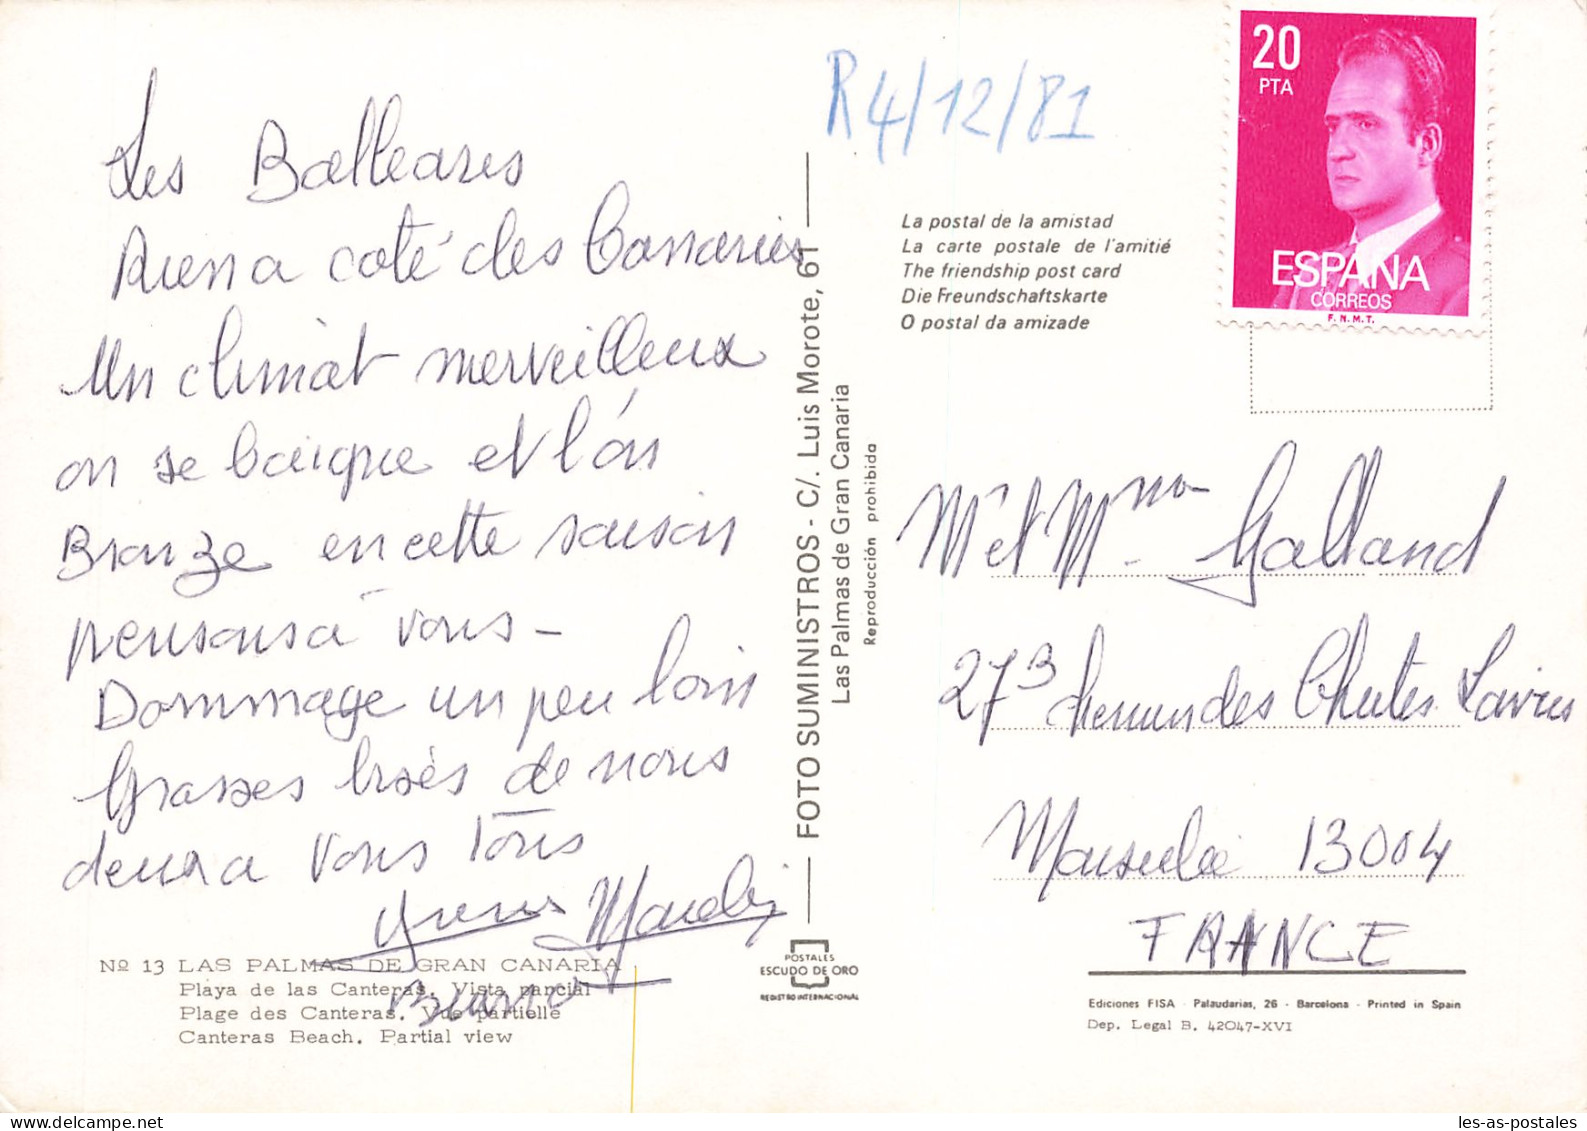 Les Balleares
Rien a coté des Canaries
Un climat merveilleux
on se baigne et l'on
Bronze en cette saison
pensons à vous -
Dommage un peu loin
Grosses bisès de nous
deux a vous Tous
R 4/12/81
20
PTA
ESPAÑA
CORREOS
F.N.M.T.
La postal de la amistad
La carte postale de l'amitié
The friendship post card
Die Freundschaftskarte
O postal da amizade
FOTO SUMINISTROS - C/. Luis Morote, 61
Las Palmas de Gran Canaria
Reproducción prohibida
Mr et Mme Galland
27 B des Chutes Lavies
Marseille 13004
FRANCE
Nº 13 LAS PALMAS DE GRAN CANARIA
Playa de las Canteras. Vista parcial
Plage des Canteras. Vue partielle
Canteras Beach. Partial view
POSTALES
ESCUDO DE ORO
REGISTRO INTERNACIONAL
Ediciones FISA - Palaudarias, 26 - Barcelona - Printed in Spain
Dep. Legal B. 42047-XVI
les-as-postales